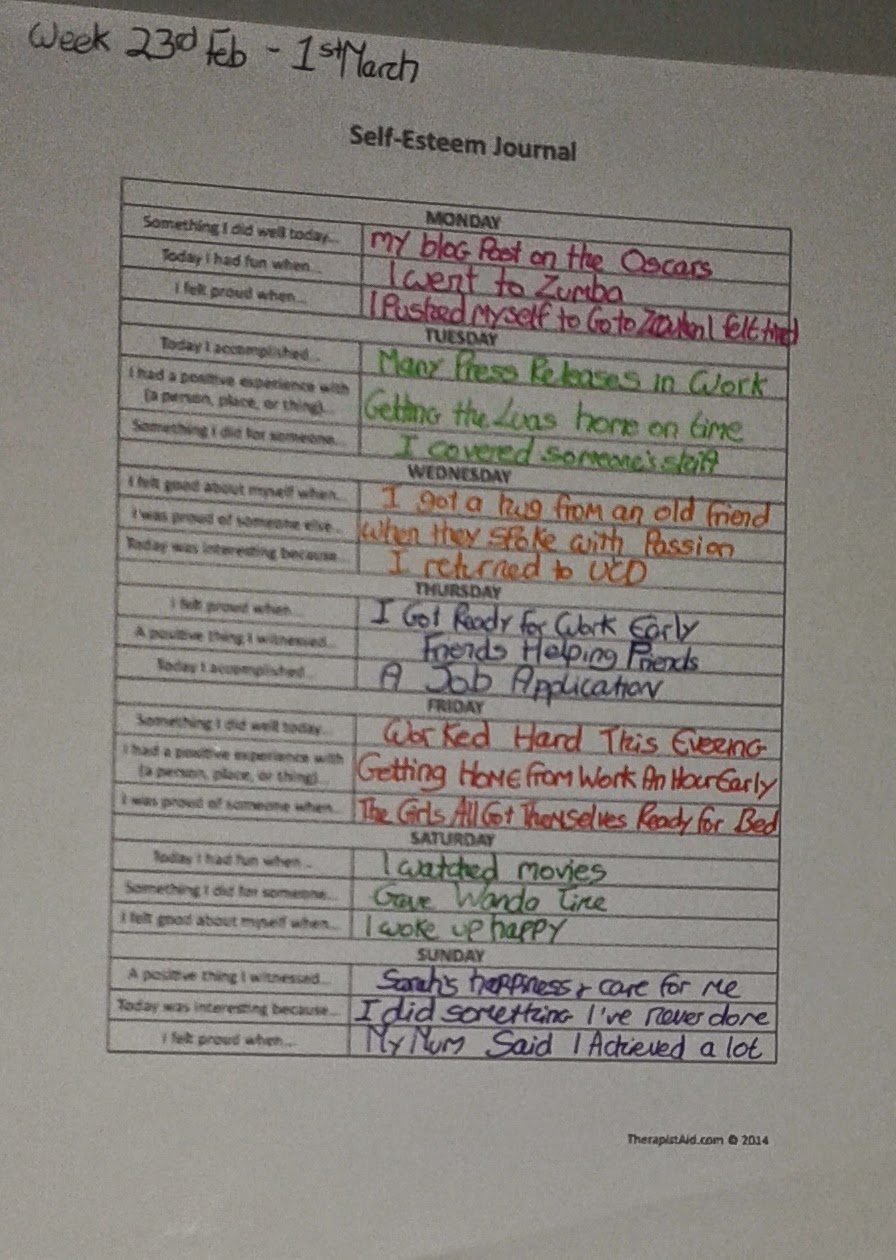 Week 23rd Feb - 1st March
Self-Esteem Journal
MONDAY
Something I did well today... My blog Post on the Oscars
Today I had fun when... I went to Zumba
I felt proud when... I Pushed Myself to Go to when I felt tired
TUESDAY
Today I accomplished... Many Press Releases in Work
I had a positive experience with
(a person, place, or thing)... Getting the Luas home on time
Something I did for someone... I covered someone's shift
WEDNESDAY
I felt good about myself when... I got a hug from an old friend
I was proud of someone else... When they spoke with Passion
Today was interesting because... I returned to UCD
THURSDAY
I felt proud when... I Got Ready for Work Early
A positive thing I witnessed... Friends Helping Friends
Today I accomplished... A Job Application
FRIDAY
Something I did well today... Worked Hard This Evening
I had a positive experience with
(a person, place, or thing)... Getting Home From Work An Hour Early
I was proud of someone when... The Girls All Got Themselves Ready for Bed
SATURDAY
Today I had fun when... I watched movies
Something I did for someone... Gave Wanda Time
I felt good about myself when... I woke up happy
SUNDAY
A positive thing I witnessed... Sarah's happiness & care for me
Today was interesting because... I did something I've never done
I felt proud when... My Mum Said I Achieved a lot
TherapistAid.com © 2014